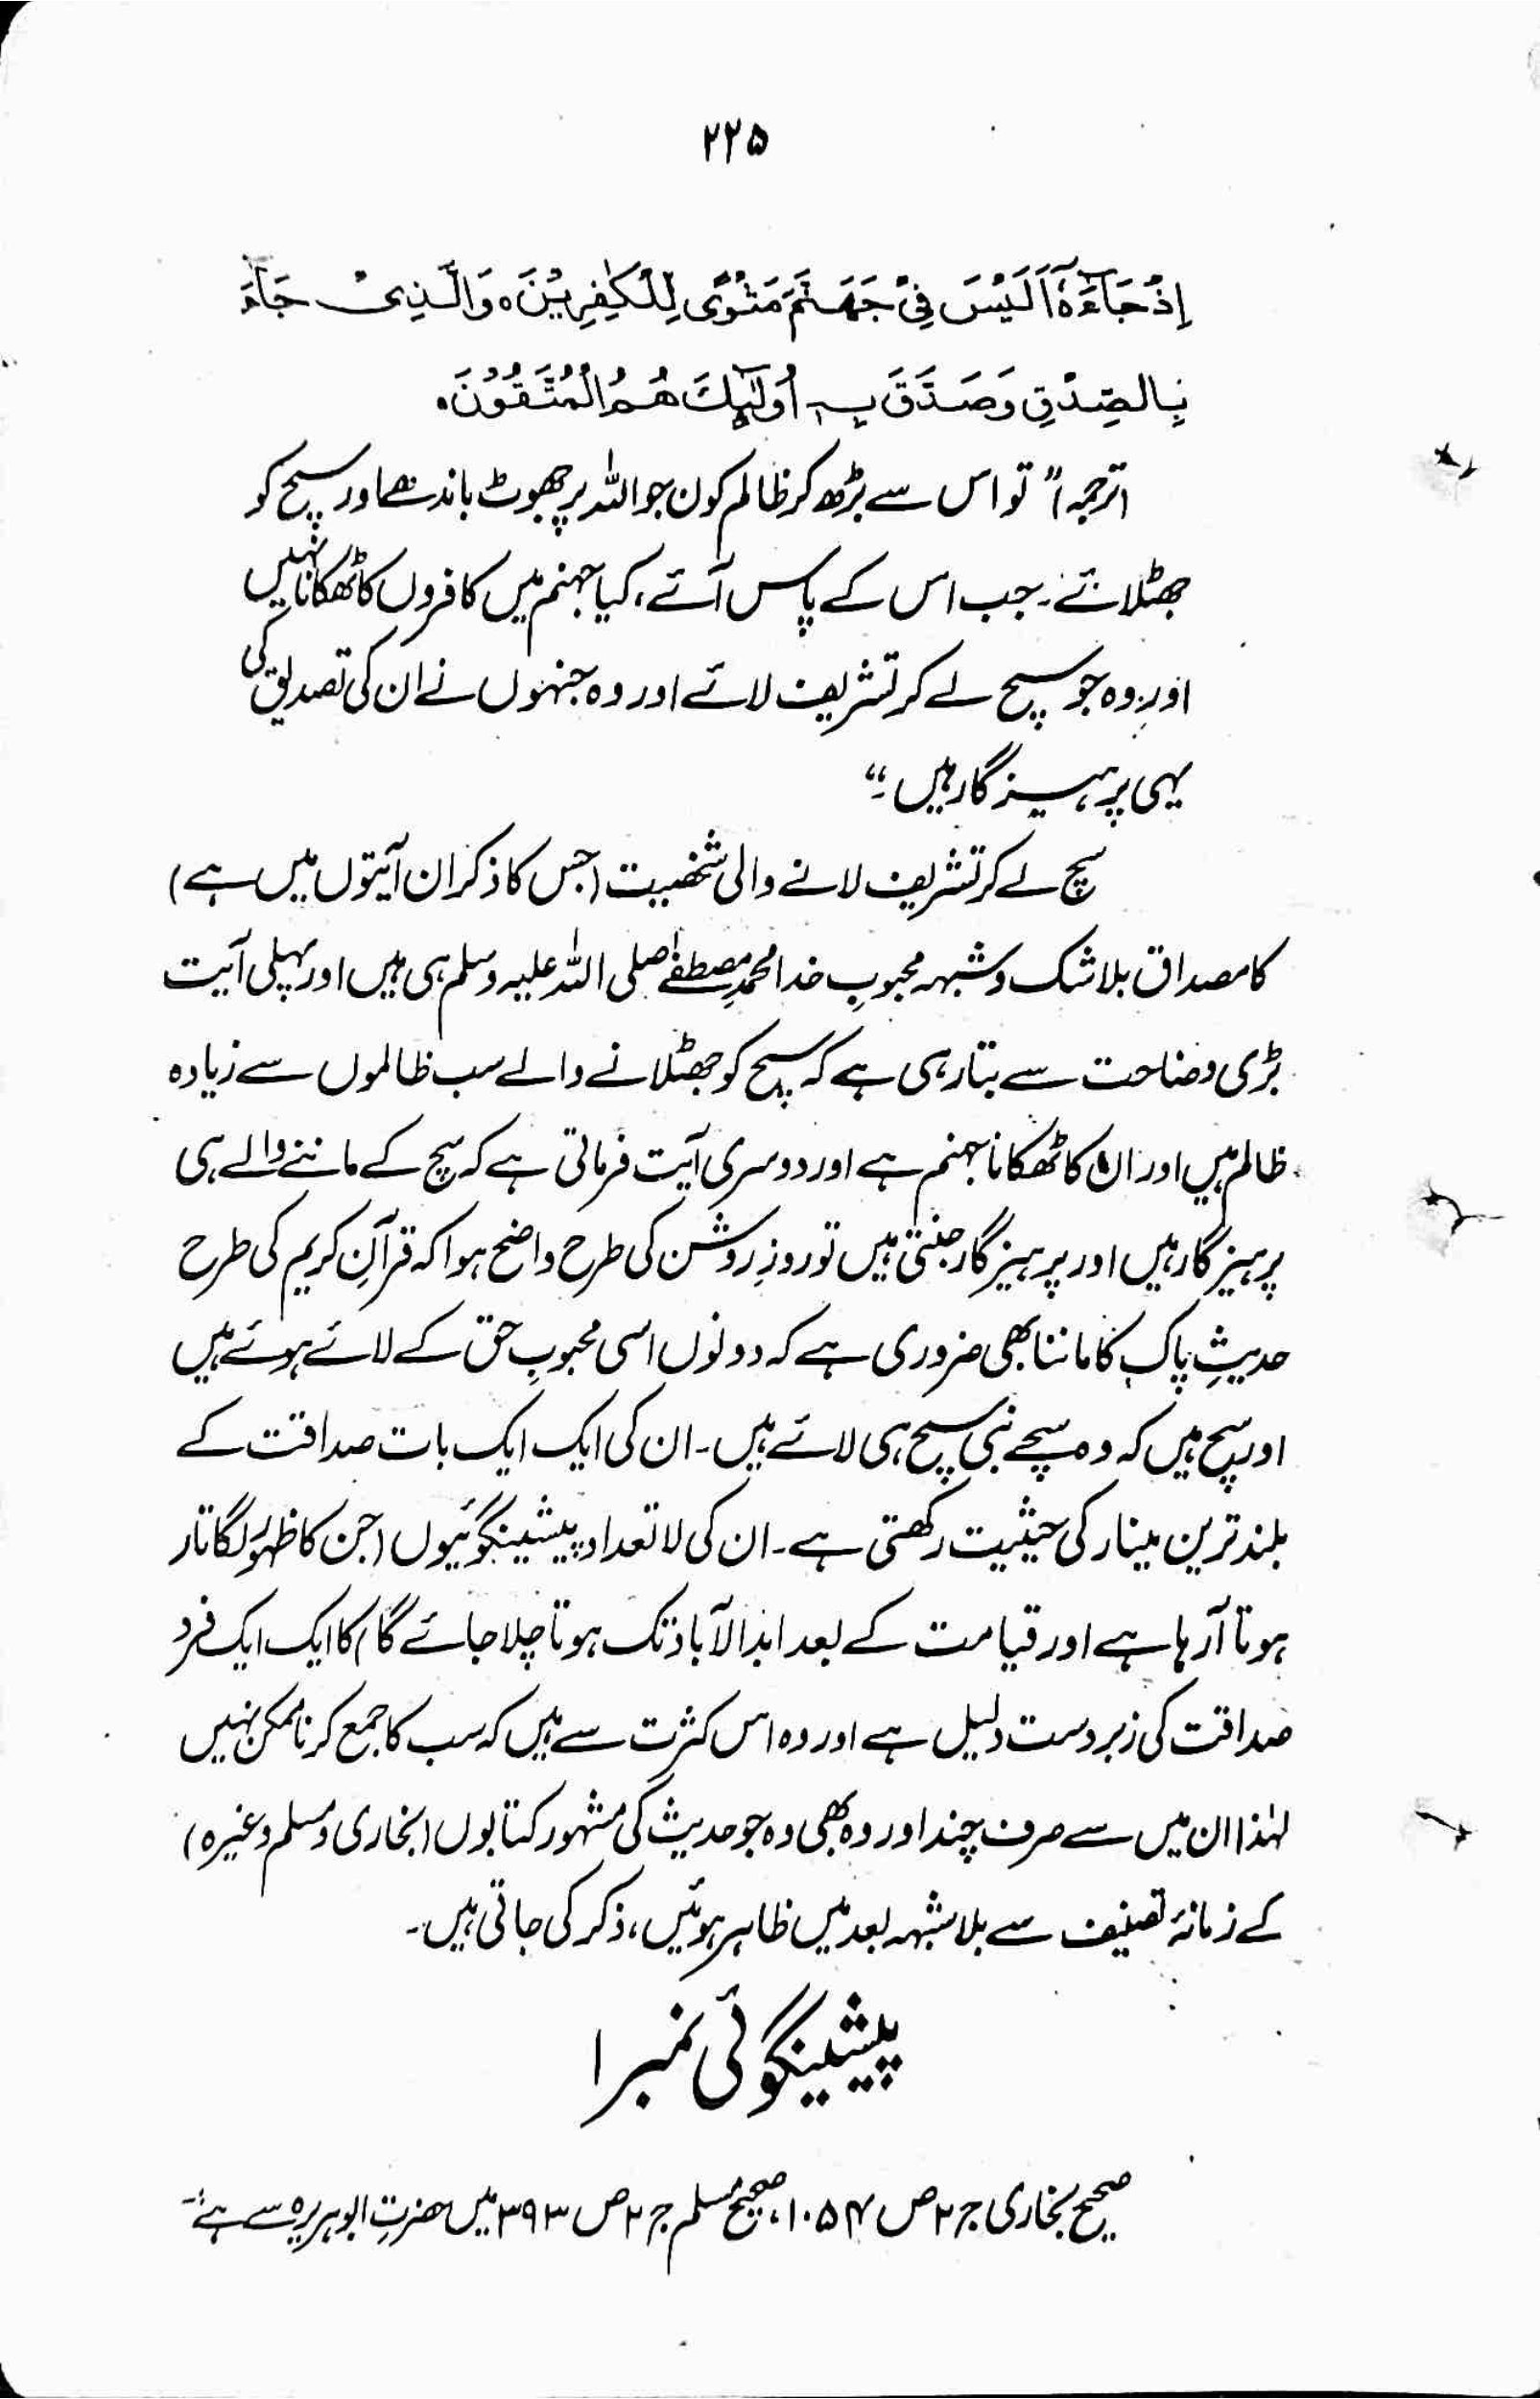 ۲۲۵
اِذْ جَآءَهٗ اَلَیْسَ فِیْ جَهَنَّمَ مَثْوًی لِّلْکٰفِرِیْنَ ۰ وَالَّذِیْ جَآءَ
بِالصِّدْقِ وَصَدَّقَ بِهٖ اُولٰٓئِکَ هُمُ الْمُتَّقُوْنَ ۰
(ترجمہ) ”تو اس سے بڑھ کر ظالم کون جو اللہ پر جھوٹ باندھے اور سچ کو
جھٹلائے۔ جب اس کے پاس آئے، کیا جہنم میں کافروں کا ٹھکانا نہیں
اور وہ جو سچ لے کر تشریف لائے اور وہ جنہوں نے ان کی تصدیق کی
یہی پرہیزگار ہیں۔“
سچ لے کر تشریف لانے والی شخصیت (جس کا ذکر ان آیتوں میں ہے)
کا مصداق بلا شک و شبہہ محبوبِ خدا محمدِ مصطفےٰ صلی اللہ علیہ وسلم ہی ہیں اور پہلی آیت
بڑی وضاحت سے بتا رہی ہے کہ سچ کو جھٹلانے والے سب ظالموں سے زیادہ
ظالم ہیں اور ان کا ٹھکانا جہنم ہے اور دوسری آیت فرماتی ہے کہ سچ کے ماننے والے ہی
پرہیزگار ہیں اور پرہیزگار جنتی ہیں تو روزِ روشن کی طرح واضح ہوا کہ قرآنِ کریم کی طرح
حدیثِ پاک کا ماننا بھی ضروری ہے کہ دونوں اسی محبوبِ حق کے لائے ہوئے ہیں
اور سچ ہیں کہ وہ سچے نبی سچ ہی لائے ہیں۔ ان کی ایک ایک بات صداقت کے
بلند ترین مینار کی حیثیت رکھتی ہے۔ ان کی لاتعداد پیشینگوئیوں (جن کا ظہور لگاتار
ہوتا آ رہا ہے اور قیامت کے بعد ابدالآباد تک ہوتا چلا جائے گا) کا ایک ایک فرد
صداقت کی زبردست دلیل ہے اور وہ اس کثرت سے ہیں کہ سب کا جمع کرنا ممکن نہیں
لہٰذا ان میں سے صرف چند اور وہ بھی وہ جو حدیث کی مشہور کتابوں (بخاری و مسلم وغیرہ)
کے زمانۂ تصنیف سے بلا شبہہ بعد میں ظاہر ہوئیں، ذکر کی جاتی ہیں۔
پیشینگوئی نمبر ۱
صحیح بخاری ج ۲ ص ۱۰۵۴، صحیح مسلم ج ۲ ص ۳۹۳ میں حضرتِ ابوہریرہ سے ہے:۔